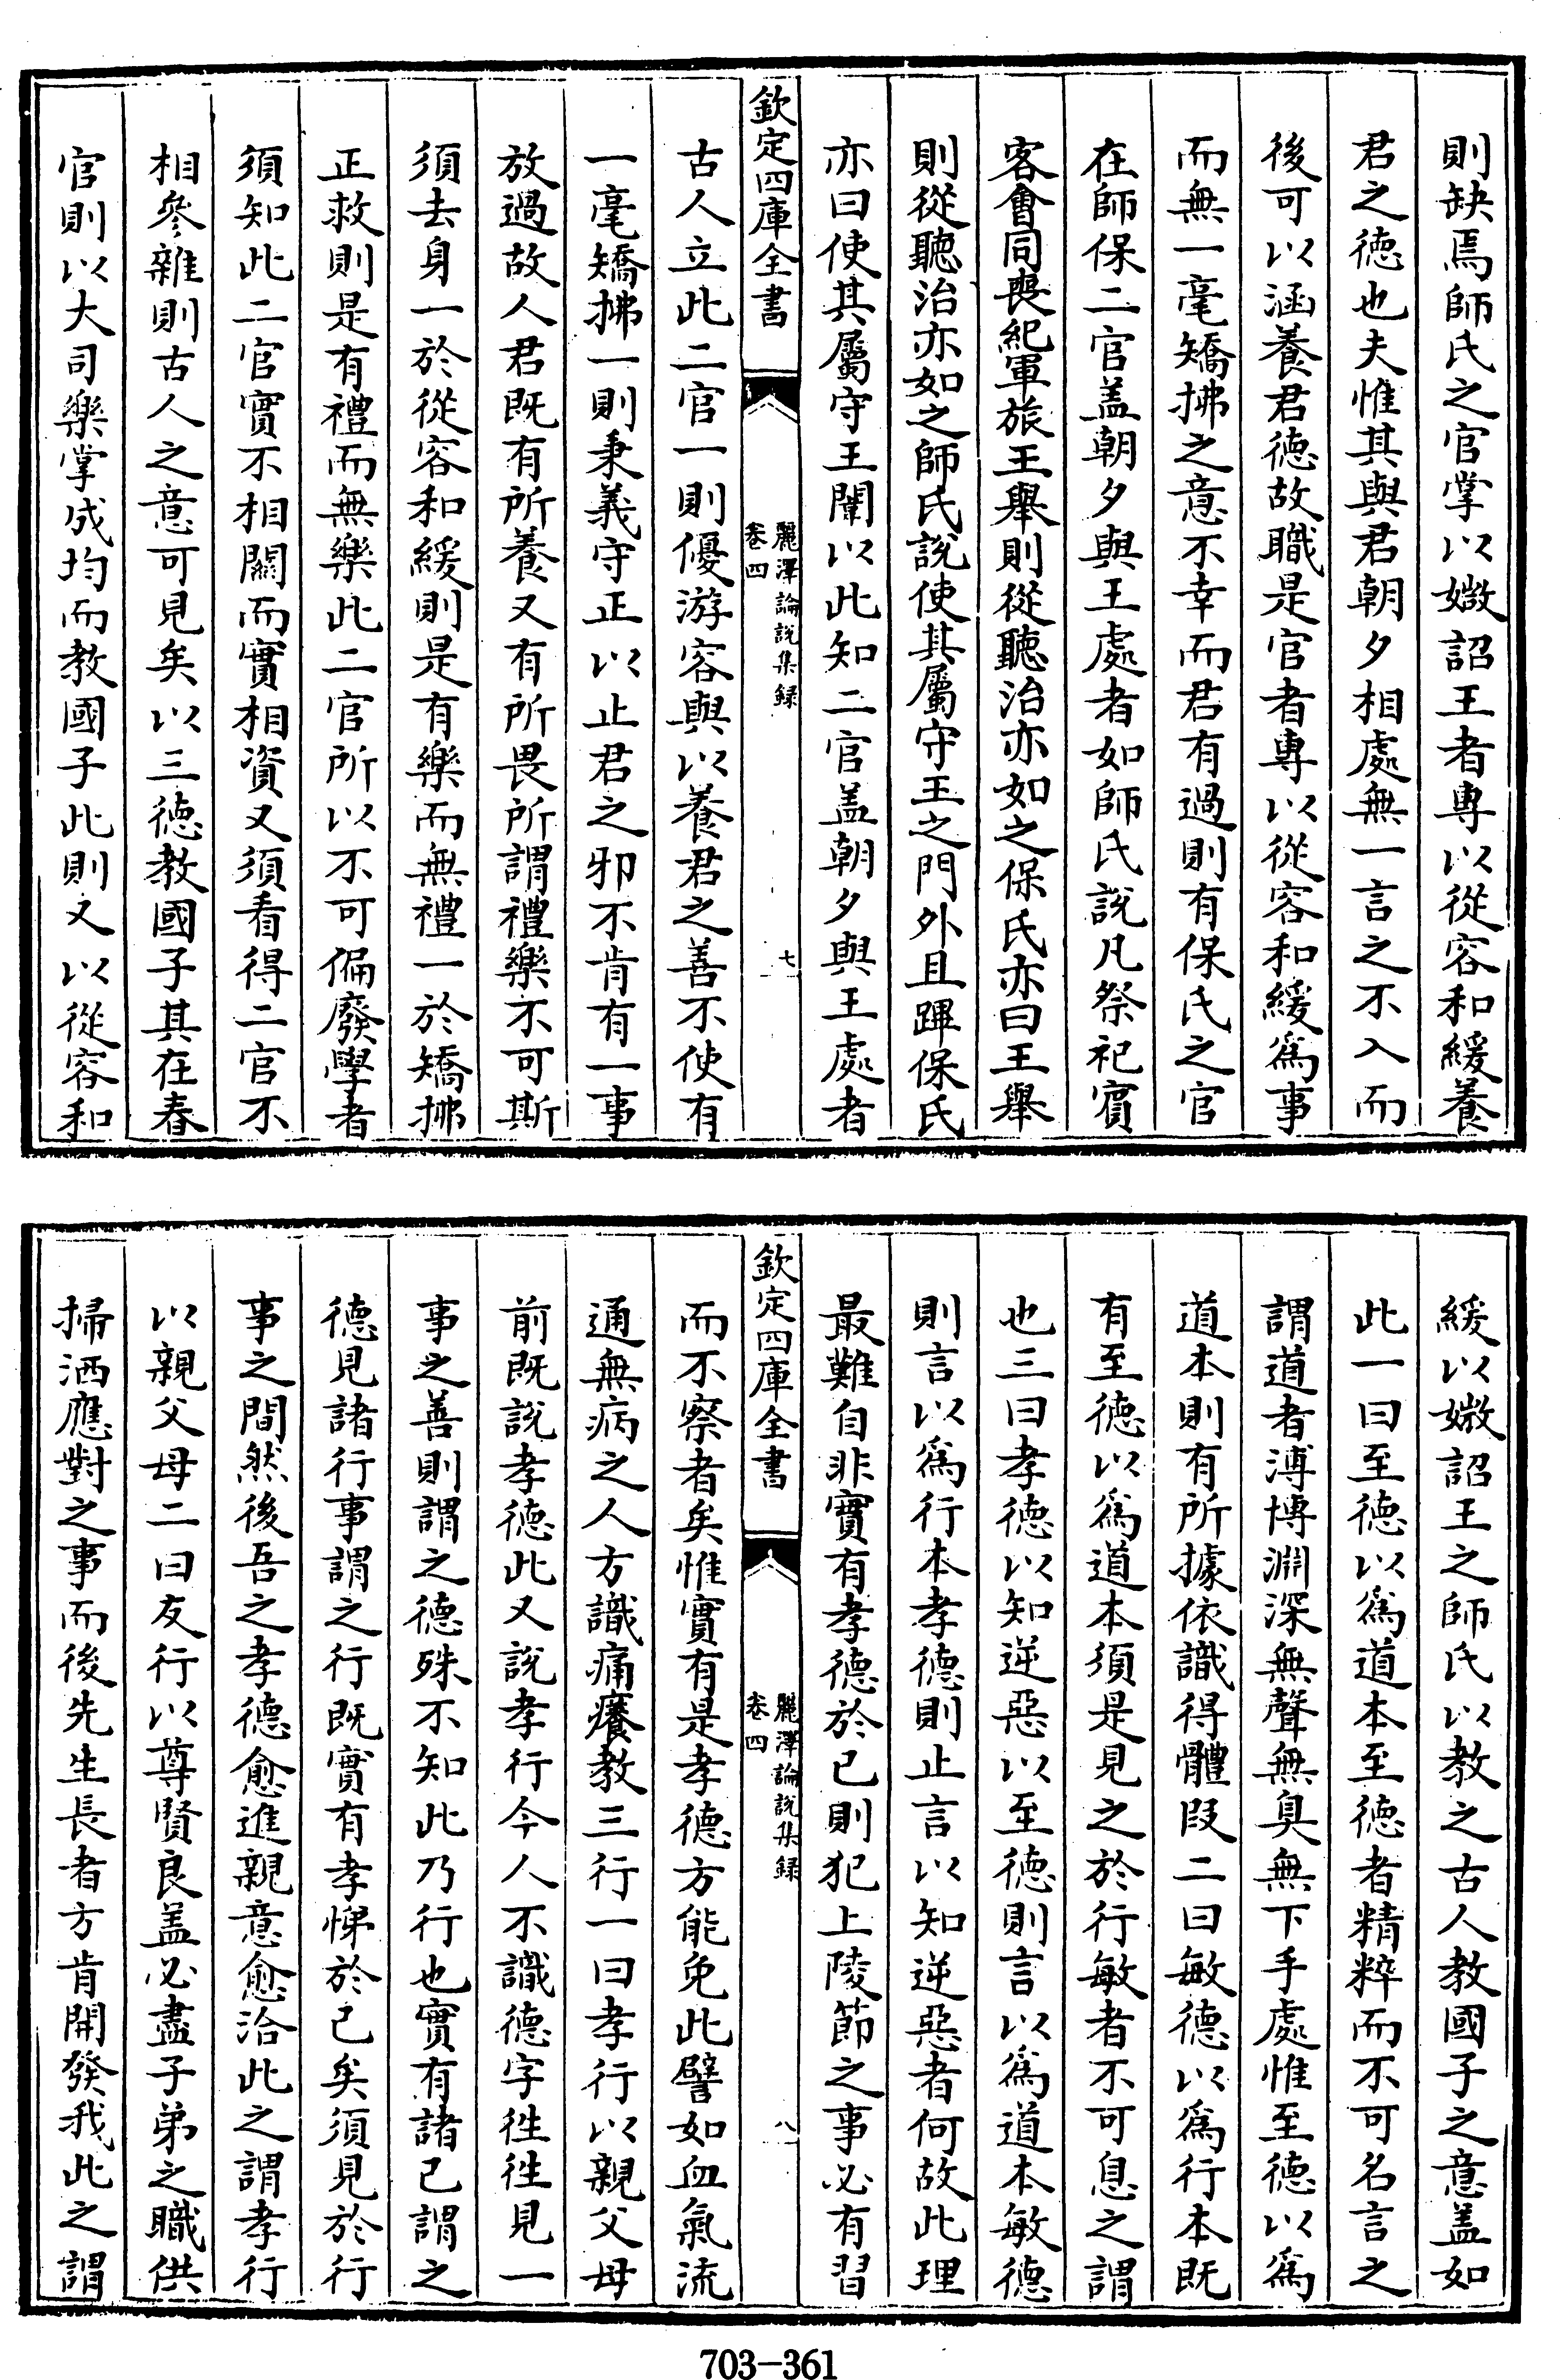 則缺焉師氏之官掌以媺詔王者專以從容和緩養
君之德也夫惟其與君朝夕相處無一言之不入而
後可以涵養君德故職是官者專以從容和緩為事
而無一毫矯拂之意不幸而君有過則有保氏之官
在師保二官盖朝夕與王處者如師氏說凡祭祀賓
客會同喪紀軍旅王舉則從聽治亦如之保氏亦曰王舉
則從聽治亦如之師氏說使其屬守王之門外且蹕保氏
亦曰使其屬守王闈以此知二官盖朝夕與王處者
欽定四庫全書
麗澤論說集録
卷四
七
古人立此二官一則優游容與以養君之善不使有
一毫矯拂一則秉義守正以止君之邪不肯有一事
放過故人君既有所養又有所畏所謂禮樂不可斯
須去身一於從容和緩則是有樂而無禮一於矯拂
正救則是有禮而無樂此二官所以不可偏廢學者
須知此二官實不相關而實相資又須看得二官不
相參雜則古人之意可見矣以三德教國子其在春
官則以大司樂掌成均而教國子此則又以從容和
緩以媺詔王之師氏以教之古人教國子之意盖如
此一曰至德以為道本至德者精粹而不可名言之
謂道者溥博淵深無聲無臭無下手處惟至德以為
道本則有所據依識得體段二曰敏德以為行本既
有至德以為道本須是見之於行敏者不可息之謂
也三曰孝德以知逆惡以至德則言以為道本敏德
則言以為行本孝德則止言以知逆惡者何故此理
最難自非實有孝德於已則犯上陵節之事必有習
欽定四庫全書
麗澤論說集録
卷四
八
而不察者矣惟實有是孝德方能免此譬如血氣流
通無病之人方識痛癢教三行一曰孝行以親父母
前既說孝德此又說孝行今人不識德字徃徃見一
事之善則謂之德殊不知此乃行也實有諸己謂之
德見諸行事謂之行既實有孝悌於己矣須見於行
事之間然後吾之孝德愈進親意愈洽此之謂孝行
以親父母二曰友行以尊賢良盖必盡子弟之職供
掃洒應對之事而後先生長者方肯開發我此之謂
703-361